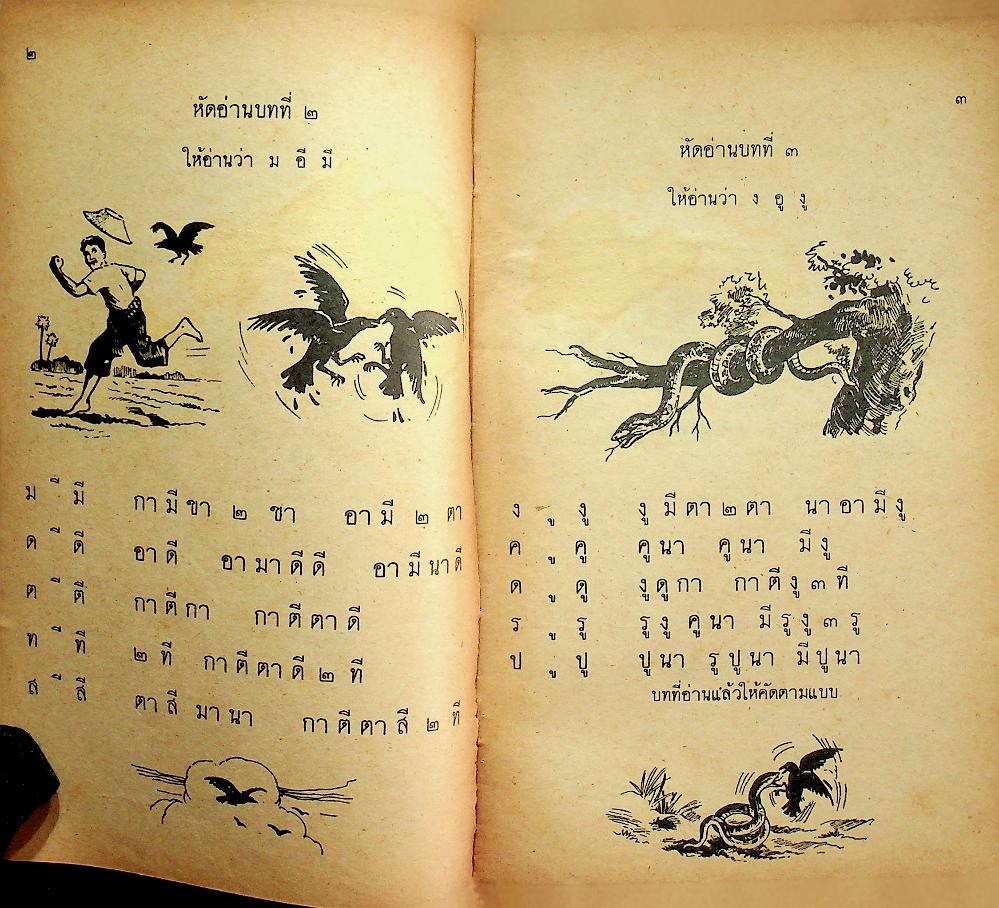 ๒
หัดอ่านบทที่ ๒
ให้อ่านว่า ม อี มี
ม ี มี กา มี ขา ๒ ขา อา มี ๒ ตา
ด ี ดี อา ดี อา มา ดี ดี อา มี นา ดี
ต ี ตี กา ตี กา กา ตี ตา ดี
ท ี ที ๒ ที กา ตี ตา ดี ๒ ที
ส ี สี ตา สี มา นา กา ตี ตา สี ๒ ที
๓
หัดอ่านบทที่ ๓
ให้อ่านว่า ง อู งู
ง ู งู งู มี ตา ๒ ตา นา อา มี งู
ค ู คู คู นา คู นา มี งู
ด ู ดู งู ดู กา กา ตี งู ๓ ที
ร ู รู รู งู คู นา มี รู งู ๓ รู
ป ู ปู ปู นา รู ปู นา มี ปู นา
บทที่อ่านแล้วให้คัดตามแบบ